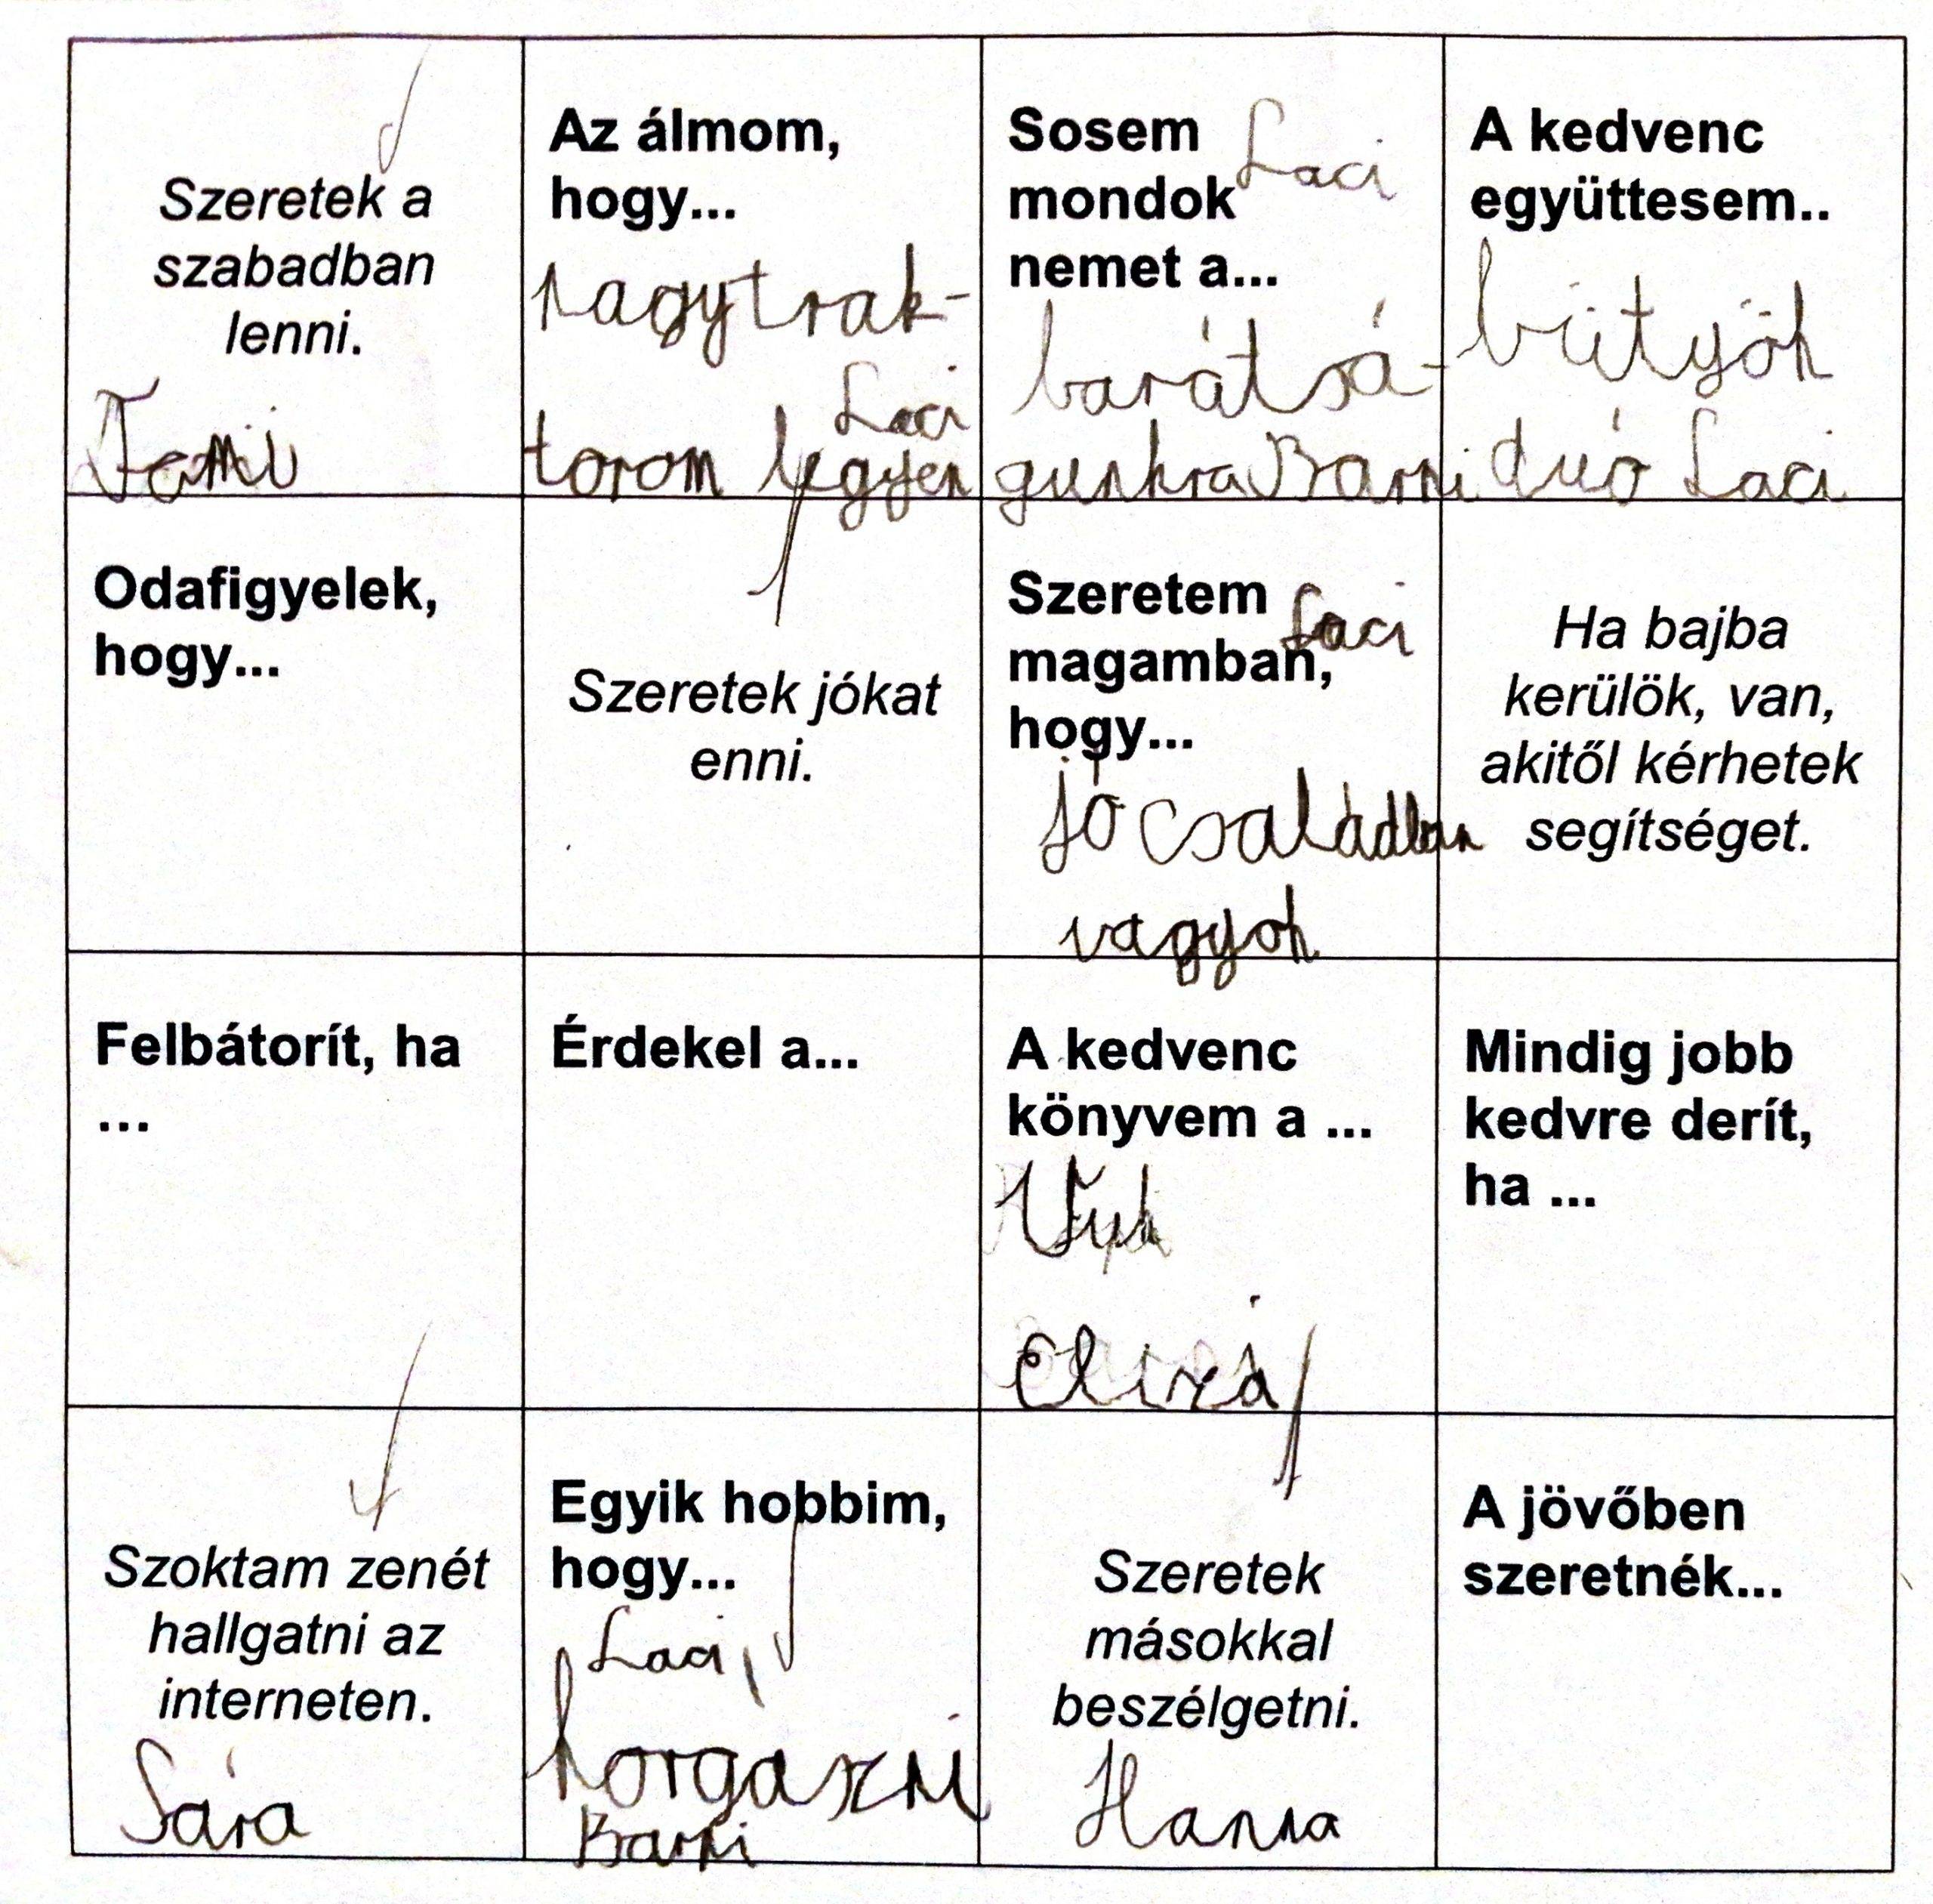 Szeretek a
szabadban
lenni.
Fami
Az álmom,
hogy...
nagytrak-
Laci
torom legyen
Sosem
Laci
mondok
nemet a...
barátsá-
gunkra Barni
A kedvenc
együttesem..
bütyök
duó Laci
Odafigyelek,
hogy...
Szeretek jókat
enni.
Szeretem
Laci
magamban,
hogy...
jó családban
vagyok
Ha bajba
kerülök, van,
akitől kérhetek
segítséget.
Felbátorít, ha
...
Érdekel a...
A kedvenc
könyvem a ...
Vuk
Elizá
Mindig jobb
kedvre derít,
ha ...
Szoktam zenét
hallgatni az
interneten.
Sára
Egyik hobbim,
hogy...
Laci,
horgászni
Barni
Szeretek
másokkal
beszélgetni.
Hanna
A jövőben
szeretnék...